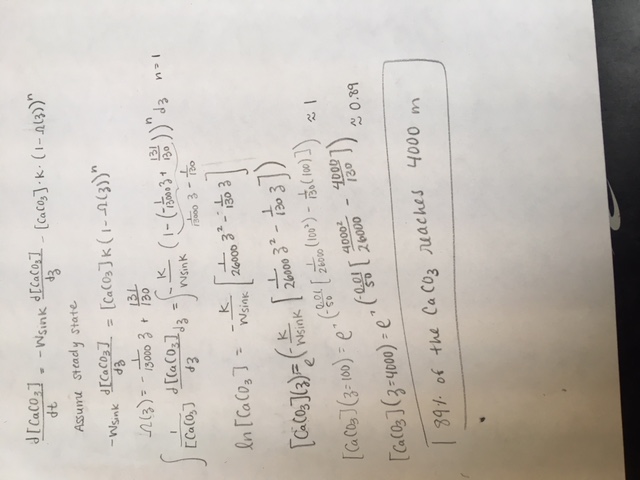 d[CaCO₃]/dt = -Wsink d[CaCO₃]/dz - [CaCO₃]·k·(1-Ω(z))ⁿ
Assume steady state
-Wsink d[CaCO₃]/dz = [CaCO₃]K(1-Ω(z))ⁿ
Ω(z) = -1/13000 z + 131/130
∫ 1/[CaCO₃] d[CaCO₃]/dz dz = ∫ -K/Wsink (1-(-1/13000 z + 131/130))ⁿ dz n=1
1/13000 z - 1/130
ln[CaCO₃] = -K/Wsink [1/26000 z² - 1/130 z]
[CaCO₃](z) = e^(-K/Wsink [1/26000 z² - 1/130 z])
[CaCO₃](z=100) = e^(-0.01/50 [1/26000 (100²) - 1/130 (100)]) ≈ 1
[CaCO₃](z=4000) = e^(-0.01/50 [4000²/26000 - 4000/130]) ≈ 0.89
89% of the CaCO₃ reaches 4000 m